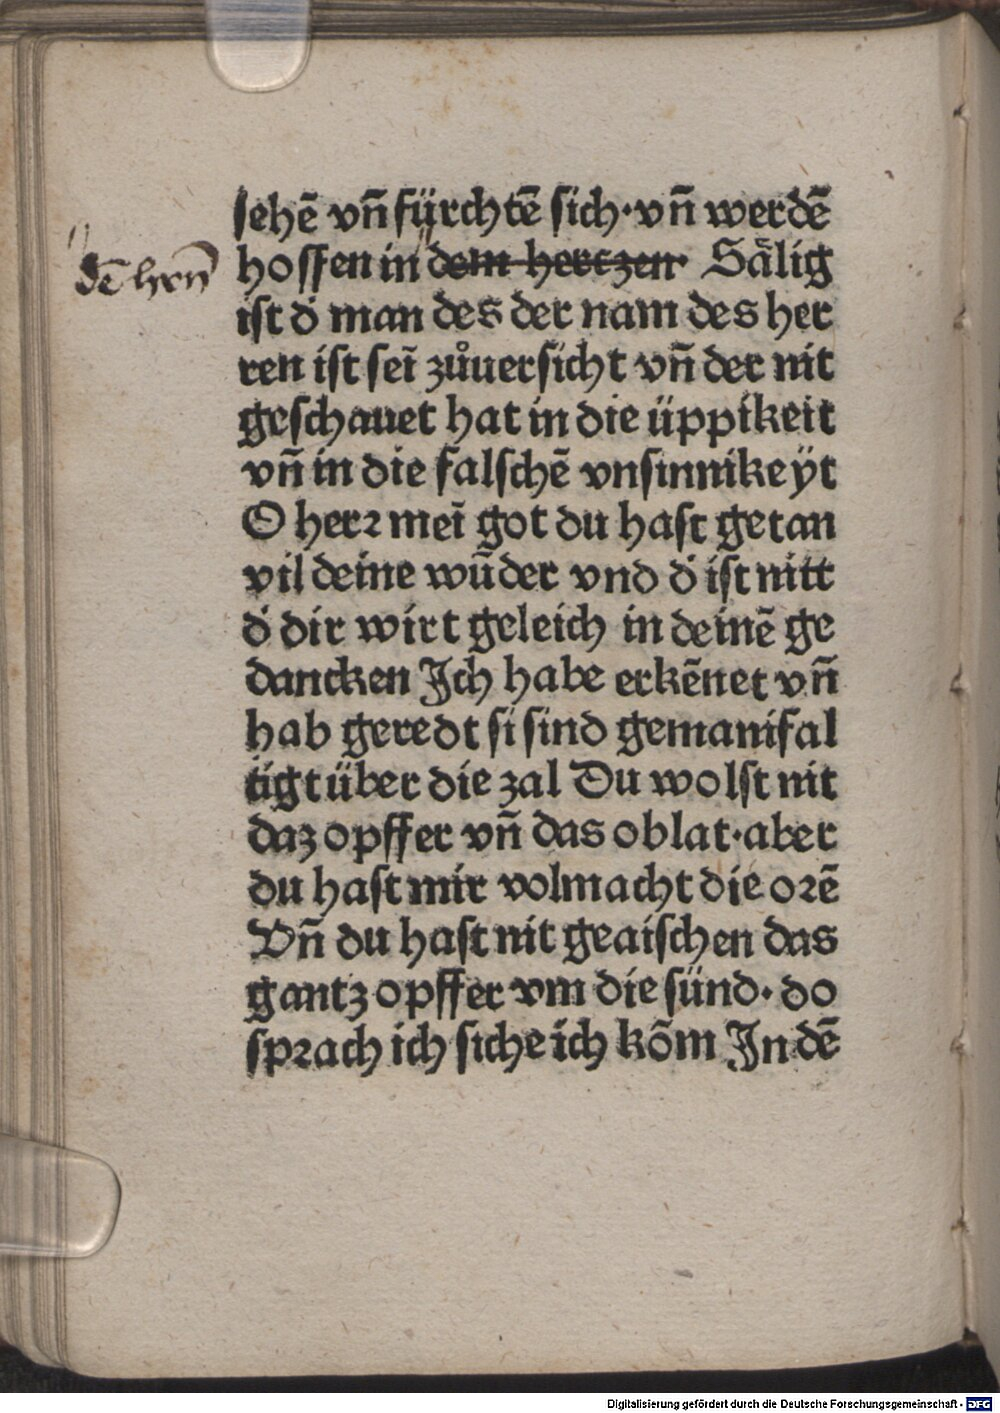 sehē vn̄ fürchtē sich·vn̄ werdē
dē hrn̄
hoffen in dem hertzen· Sälig
ist d' man des der nam des her
ren ist seī zůuersicht vn̄ der nit
geschauet hat in die üppikeit
vn̄ in die falschē vnsinnikeÿt
O herr meī got du hast getan
vil deine wūder vnd d' ist nitt
d' dir wirt geleich in deinē ge
dancken Ich habe erkēnet vn̄
hab geredt si sind gemanifal
tigt über die zal Du wolst nit
daz opffer vn̄ das oblat·aber
du hast mir volmacht die orē
Vn̄ du hast nit geaischen das
gantz opffer vm die sünd· do
sprach ich siche ich kōm In dē
Digitalisierung gefördert durch die Deutsche Forschungsgemeinschaft - DFG